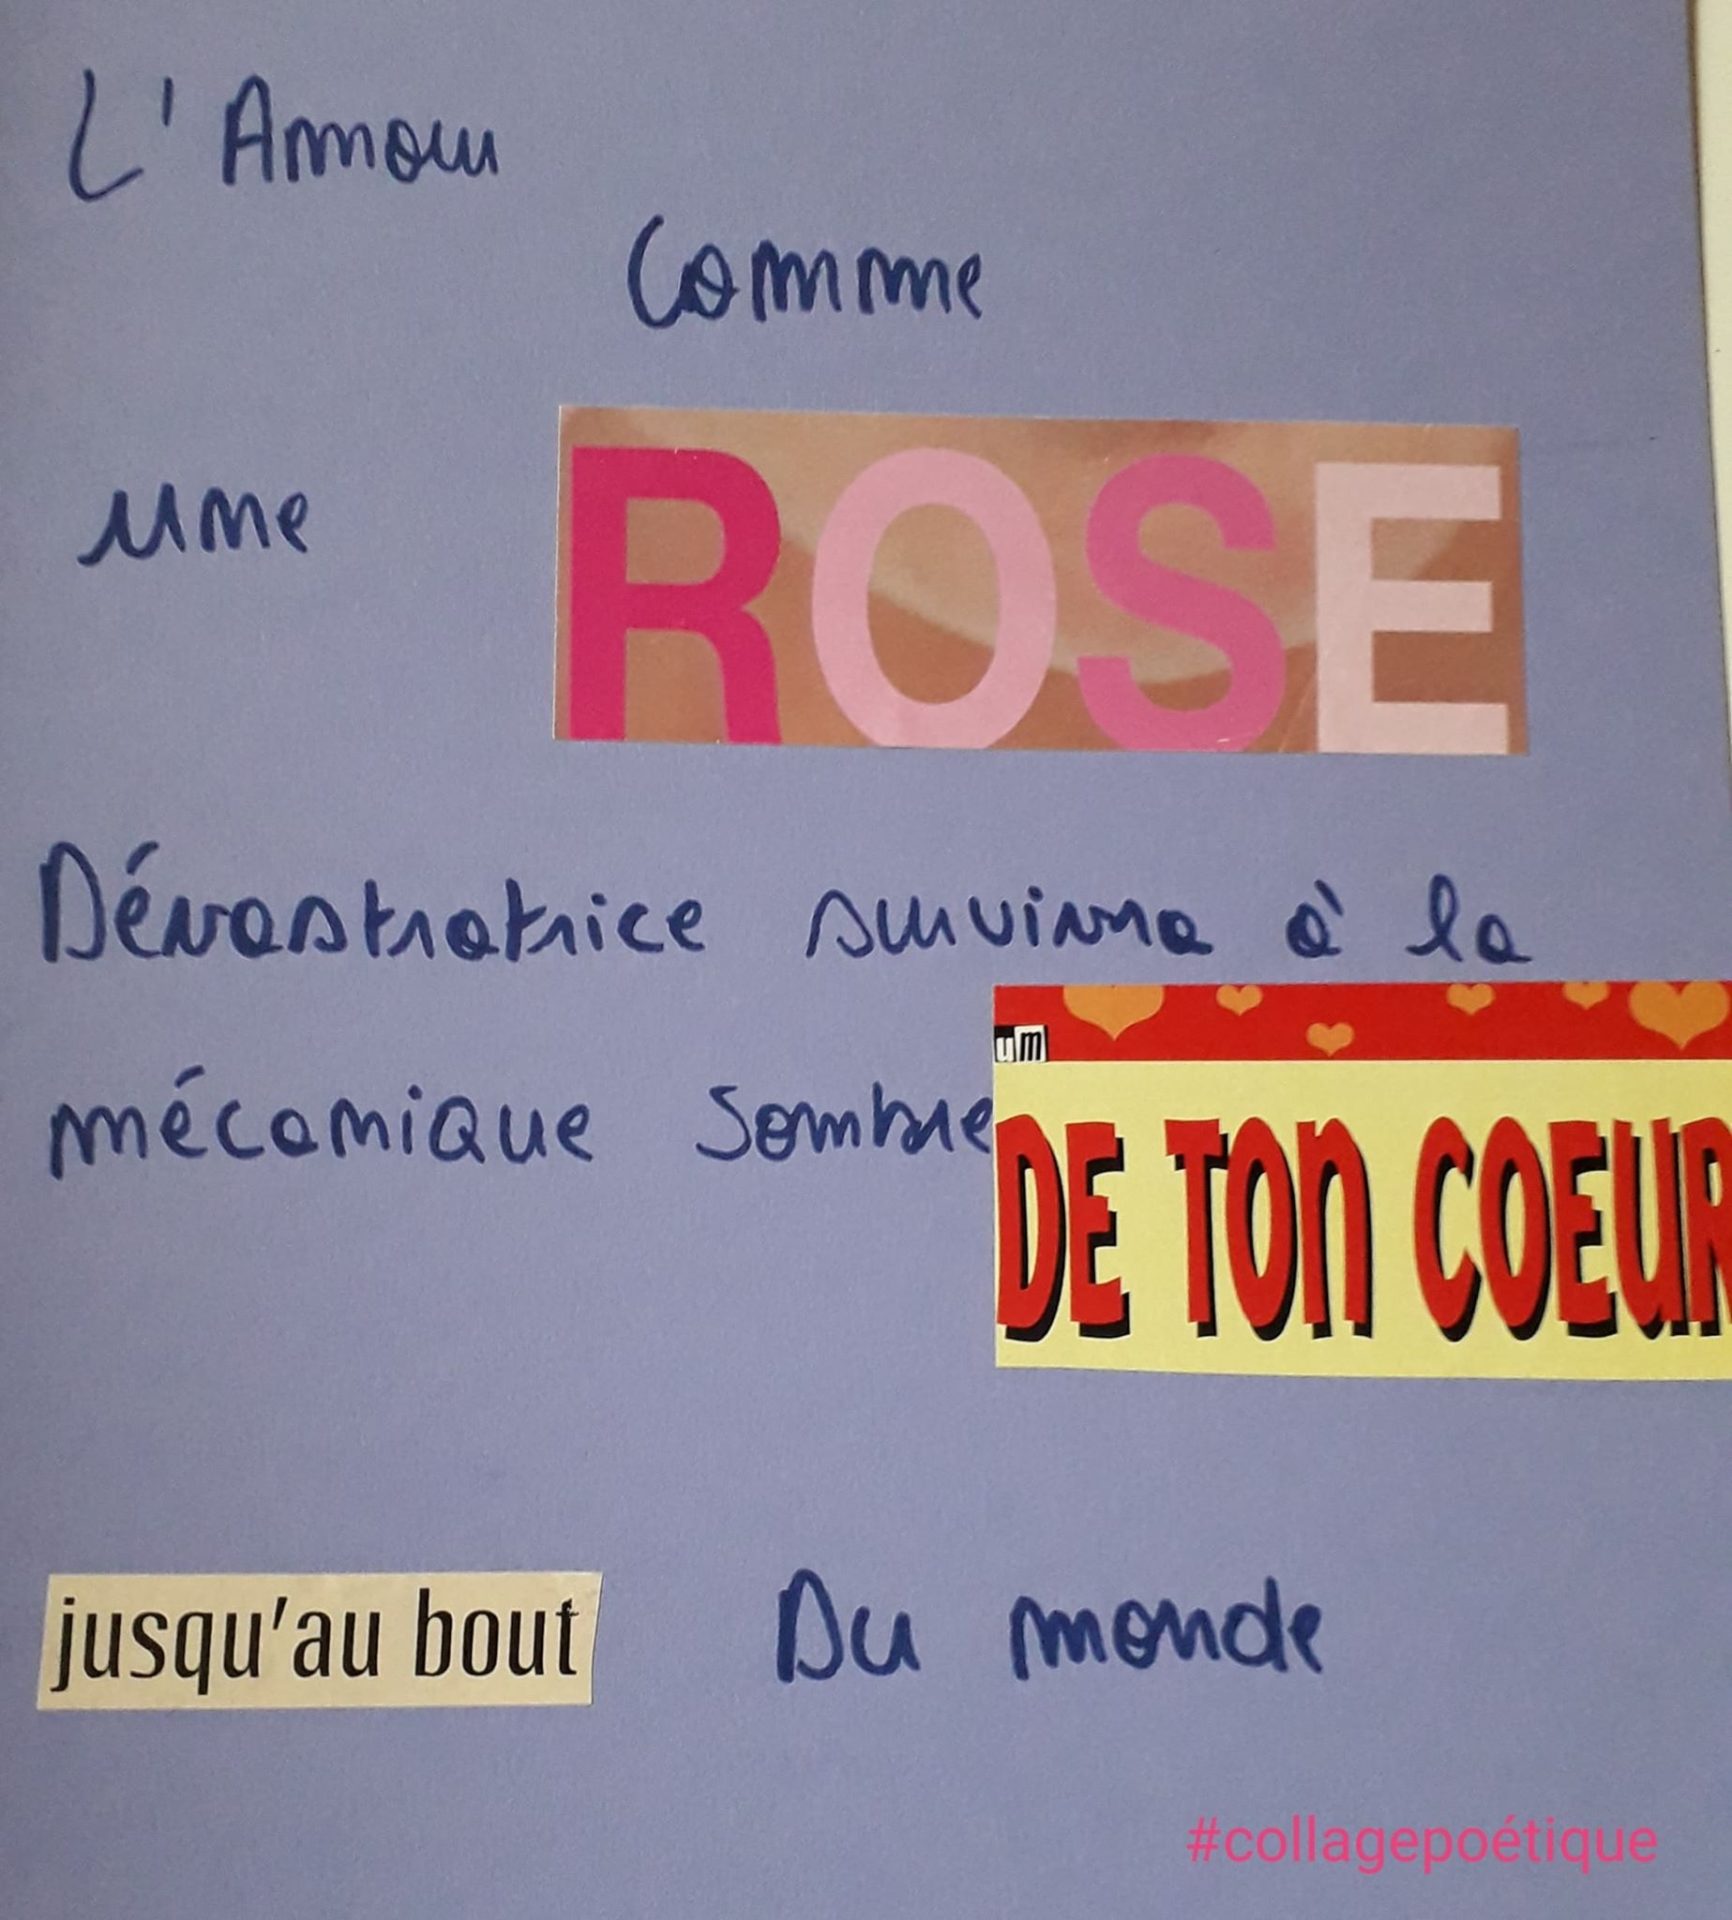 L'Amour
Comme
une ROSE
Dévastratrice survivra à la
um
mécanique sombre DE TON COEUR
jusqu'au bout Du monde
#collagepoétique